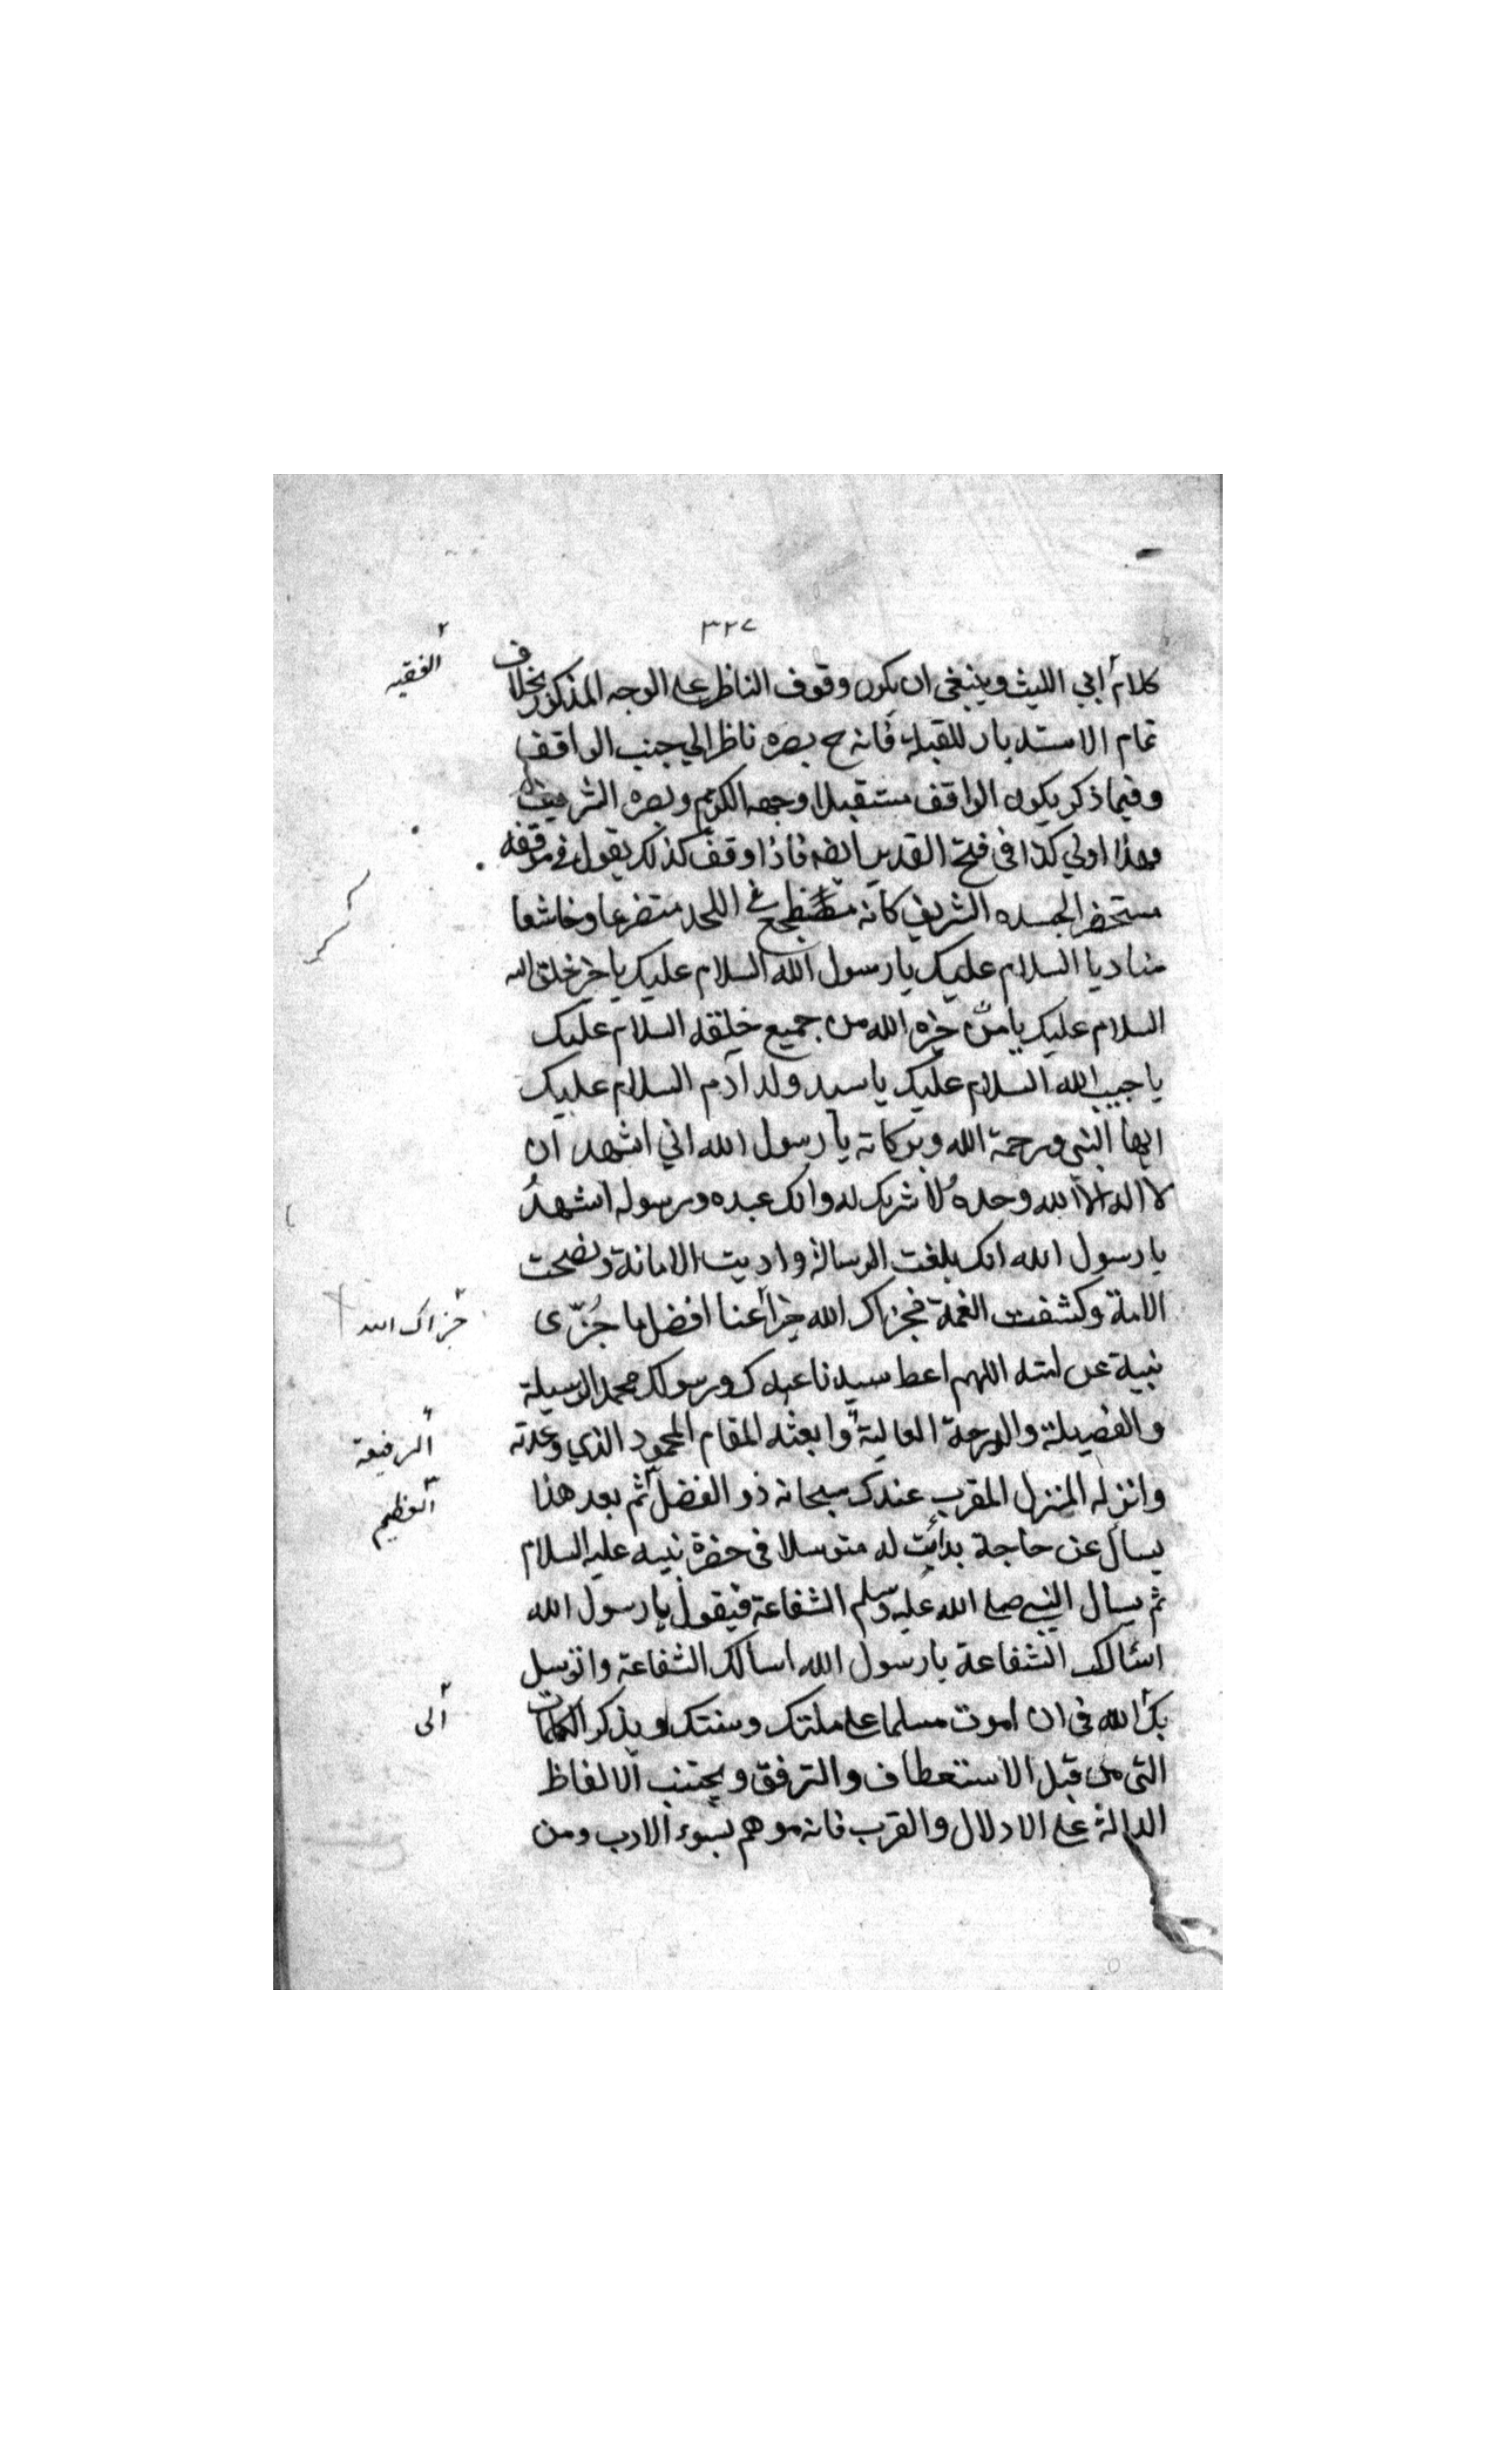 ٣٢٧
كلام ابي الليث وينبغي ان يكون وقوف الناظر على الوجه المذكور بخلاف
الفقيه
تمام الاستدبار للقبلة فانه ح بصره ناظر الي جنب الواقف
وفيما ذكر يكون الواقف مستقبلا وجهه الكريم وبصره الشريف
وهذا اولي كذا في فتح القدير ايضه فاذا وقف كذلك يقول في موقفه
مستحضر الجسده الشريف كانه مضطجع في اللحد متضرعا وخاشعا
مناديا السلام عليك يا رسول الله السلام عليك يا خير خلق الله
السلام عليك يا من خيره الله من جميع خليقه السلام عليك
يا حبيب الله السلام عليك يا سيد ولد آدم السلام عليك
ايها النبي ورحمة الله وبركاته يا رسول الله اني اشهد ان
لا اله الا الله وحده لا شريك له وانك عبده ورسوله اشهد
يا رسول الله انك بلغت الرسالة واديت الامانة ونصحت
الامة وكشفت الغمة فجزاك الله خيرا عنا افضل ما جُزّى
جزاك الله
نبية عن امته اللهم اعط سيدنا عبدك ورسولك محمد الوسيلة
والفضيلة والدرجة العالية وابعثه المقام المحمود الذي وعدته
الرفيعة
وانزله المنزل المقرب عندك سبحانه ذو الفضل ثم بعد هذا
العظيم
يسأل عن حاجة بدأيت له متوسلا في حضرة نبيه عليه السلام
ثم يسال النبي صلى الله عليه وسلم الشفاعة فيقول يا رسول الله
اسالك الشفاعة يا رسول الله اسالك الشفاعة واتوسل
بك الله في ان اموت مسلما على ملتك وسنتك ويذكر الكلمات
الى
التي من قبل الاستعطاف والترفق ويجتنب الالفاظ
الدالة على الادلال والقرب فانه موهم بسوء الادب ومن